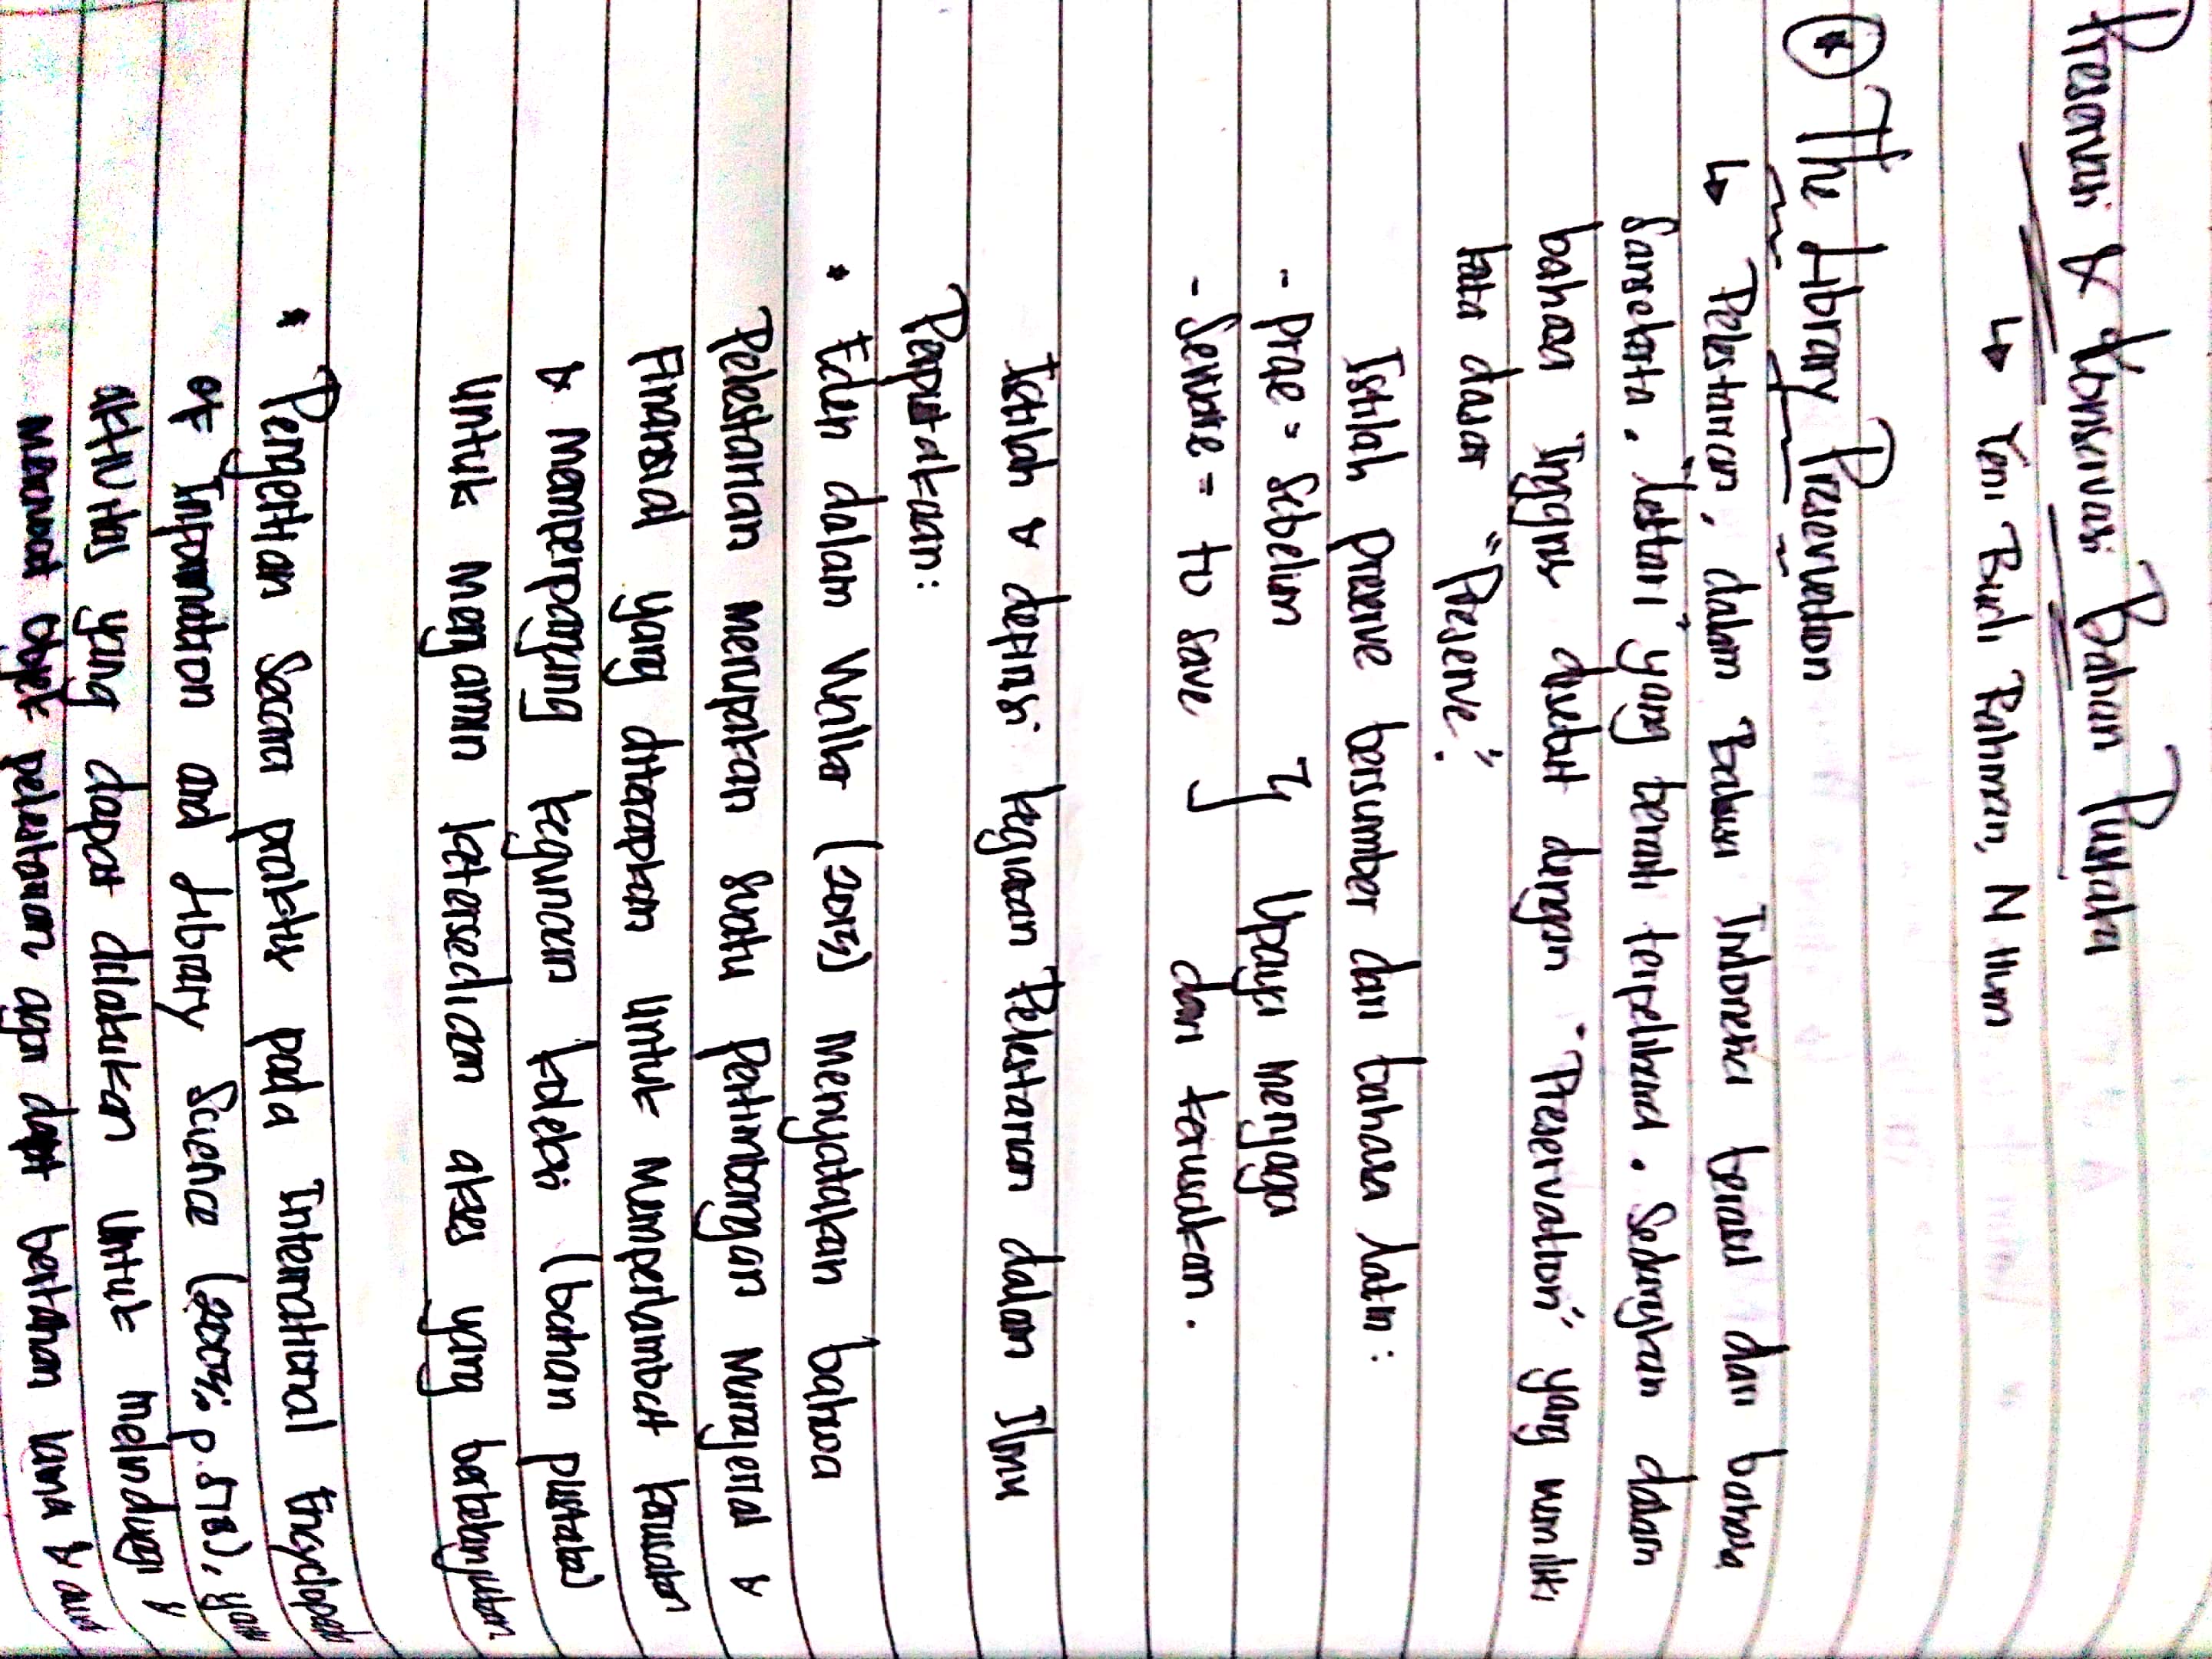 Preservasi & Konservasi Bahan Pustaka
↳ Yeni Budi Rahman, N Hum
* The Library Preservation
↳ Pelestarian, dalam Bahasa Indonesia berasal dari bahasa
Sansekerta, "lestari" yang berarti terpelihara. Sedangkan dalam
bahasa Inggris disebut dengan "Preservation" yang memiliki
kata dasar "Preserve".
Istilah preserve bersumber dari bahasa Latin:
- Prae = Sebelum } Upaya menjaga
- Servare = to save } dari kerusakan.
Istilah & definisi kegiatan Pelestarian dalam Ilmu
Perpustakaan:
* Edun dalam Waller (2015) menyatakan bahwa
Pelestarian merupakan suatu pertimbangan manajerial &
Finansial yang diterapkan untuk memperlambat kerusakan
& memperpanjang kegunaan koleksi (bahan pustaka)
untuk menjamin ketersediaan akses yang berkelanjutan
* Pengertian secara praktis pada International Encycloped
of Information and Library Science (2003: p.518), yan
aktivitas yang dapat dilakukan untuk melindungi &
merawat objek pelestarian agar dapat bertahan lama & awet